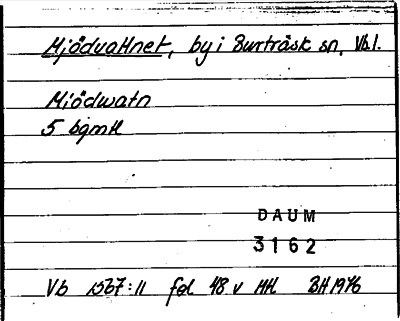 Mjödvattnet, by i Burträsk sn, Vbl.
Miödwatn
5 bgmtl
DAUM
3162
Vb 1567:11 fol 48 v HH BH 1976